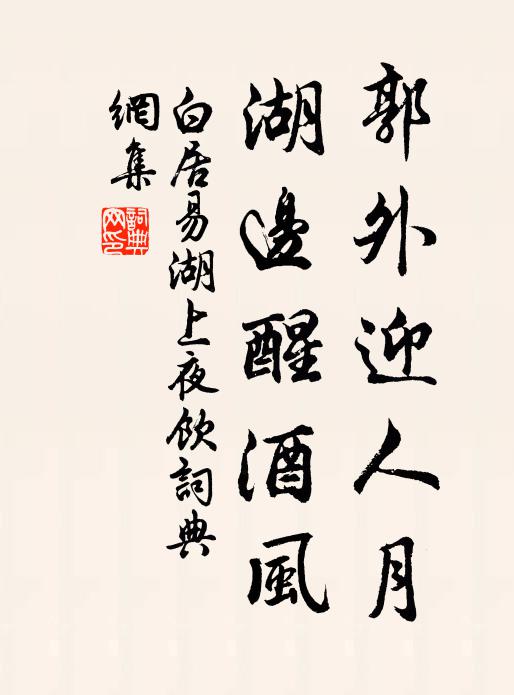 郭外迎人月
湖邊醒酒風
白居易湖上夜飲詞典
網集
詞典網印